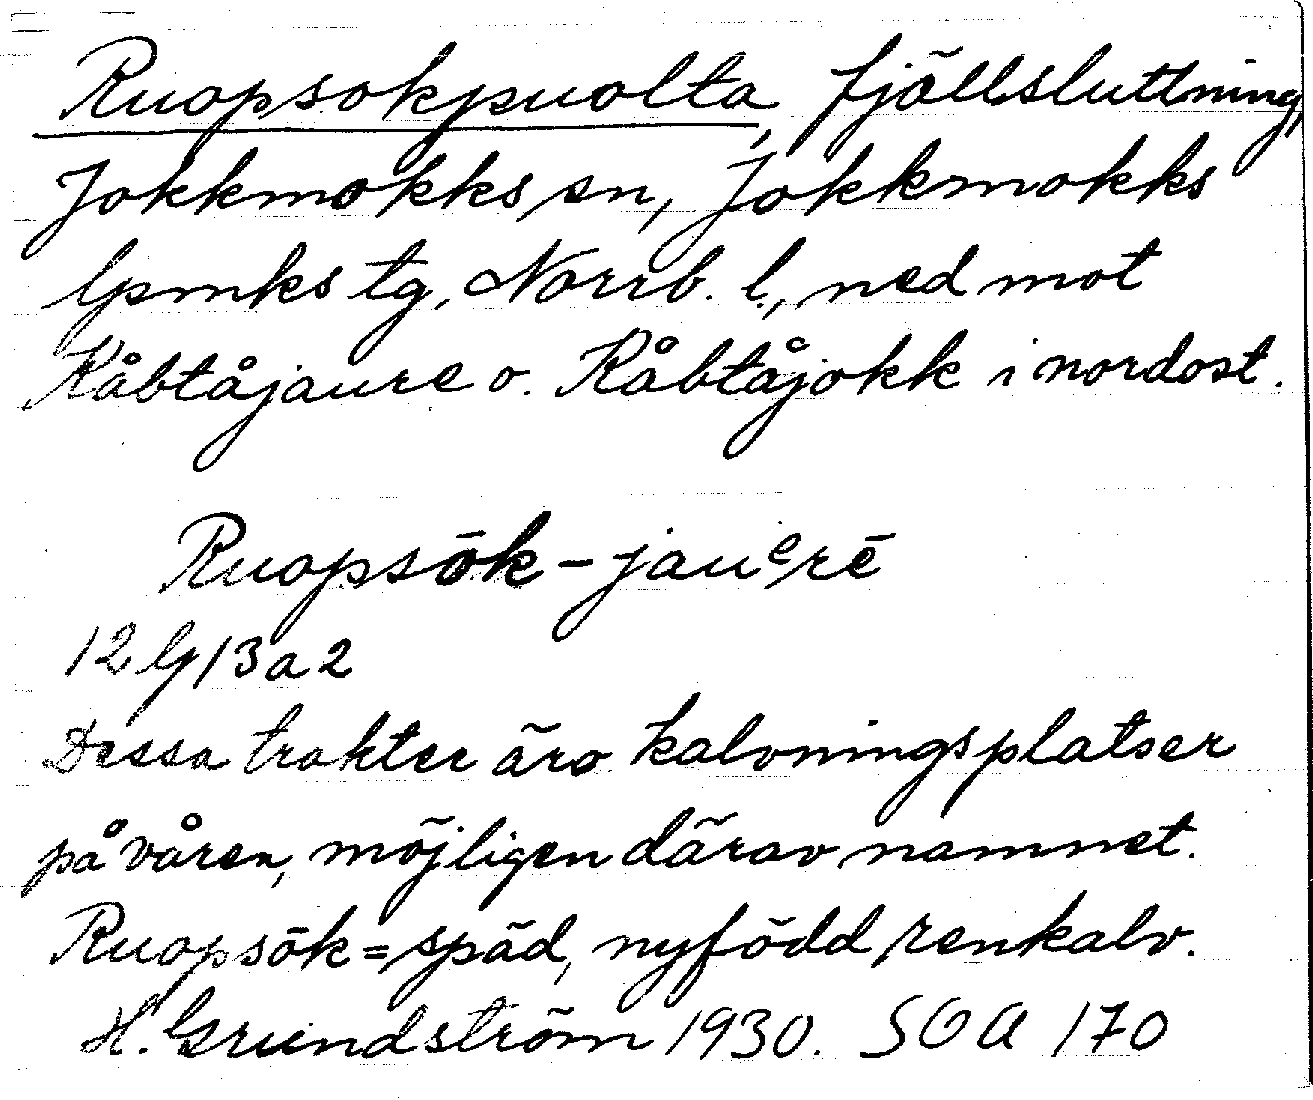 Ruopsokpuolta, fjällsluttning,
Jokkmokks sn, Jokkmokks
lpmks tg, Norrb. l., ned mot
Kåbtåjaure o. Kåbtåjokk i nordost.
Ruopsōk-jauᵉrē
12 G 13 a 2
Dessa trakter äro kalvningsplatser
på våren, möjligen därav namnet.
Ruopsōk = späd, nyfödd renkalv.
H. Grundström 1930. SOA 170